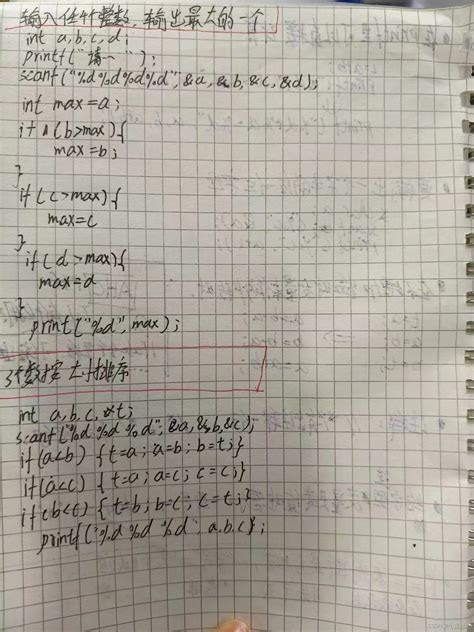 输入任4个整数 输出最大的一个
int a,b,c,d;
printf("请一");
scanf("%d%d%d%d",&a,&b,&c,&d);
int max=a;
if (b>max){
max=b;
}
if(c>max){
max=c
}
if(d>max){
max=d
}
print("%d",max);
3个数按大小排序
int a,b,c,t;
scanf("%d %d %d",&a,&b,&c);
if(a<b) {t=a;a=b;b=t;}
if(a<c) {t=a;a=c;c=c;}
if(b<c) {t=b;b=c;c=t;}
printf("%d %d %d",a.b.c);